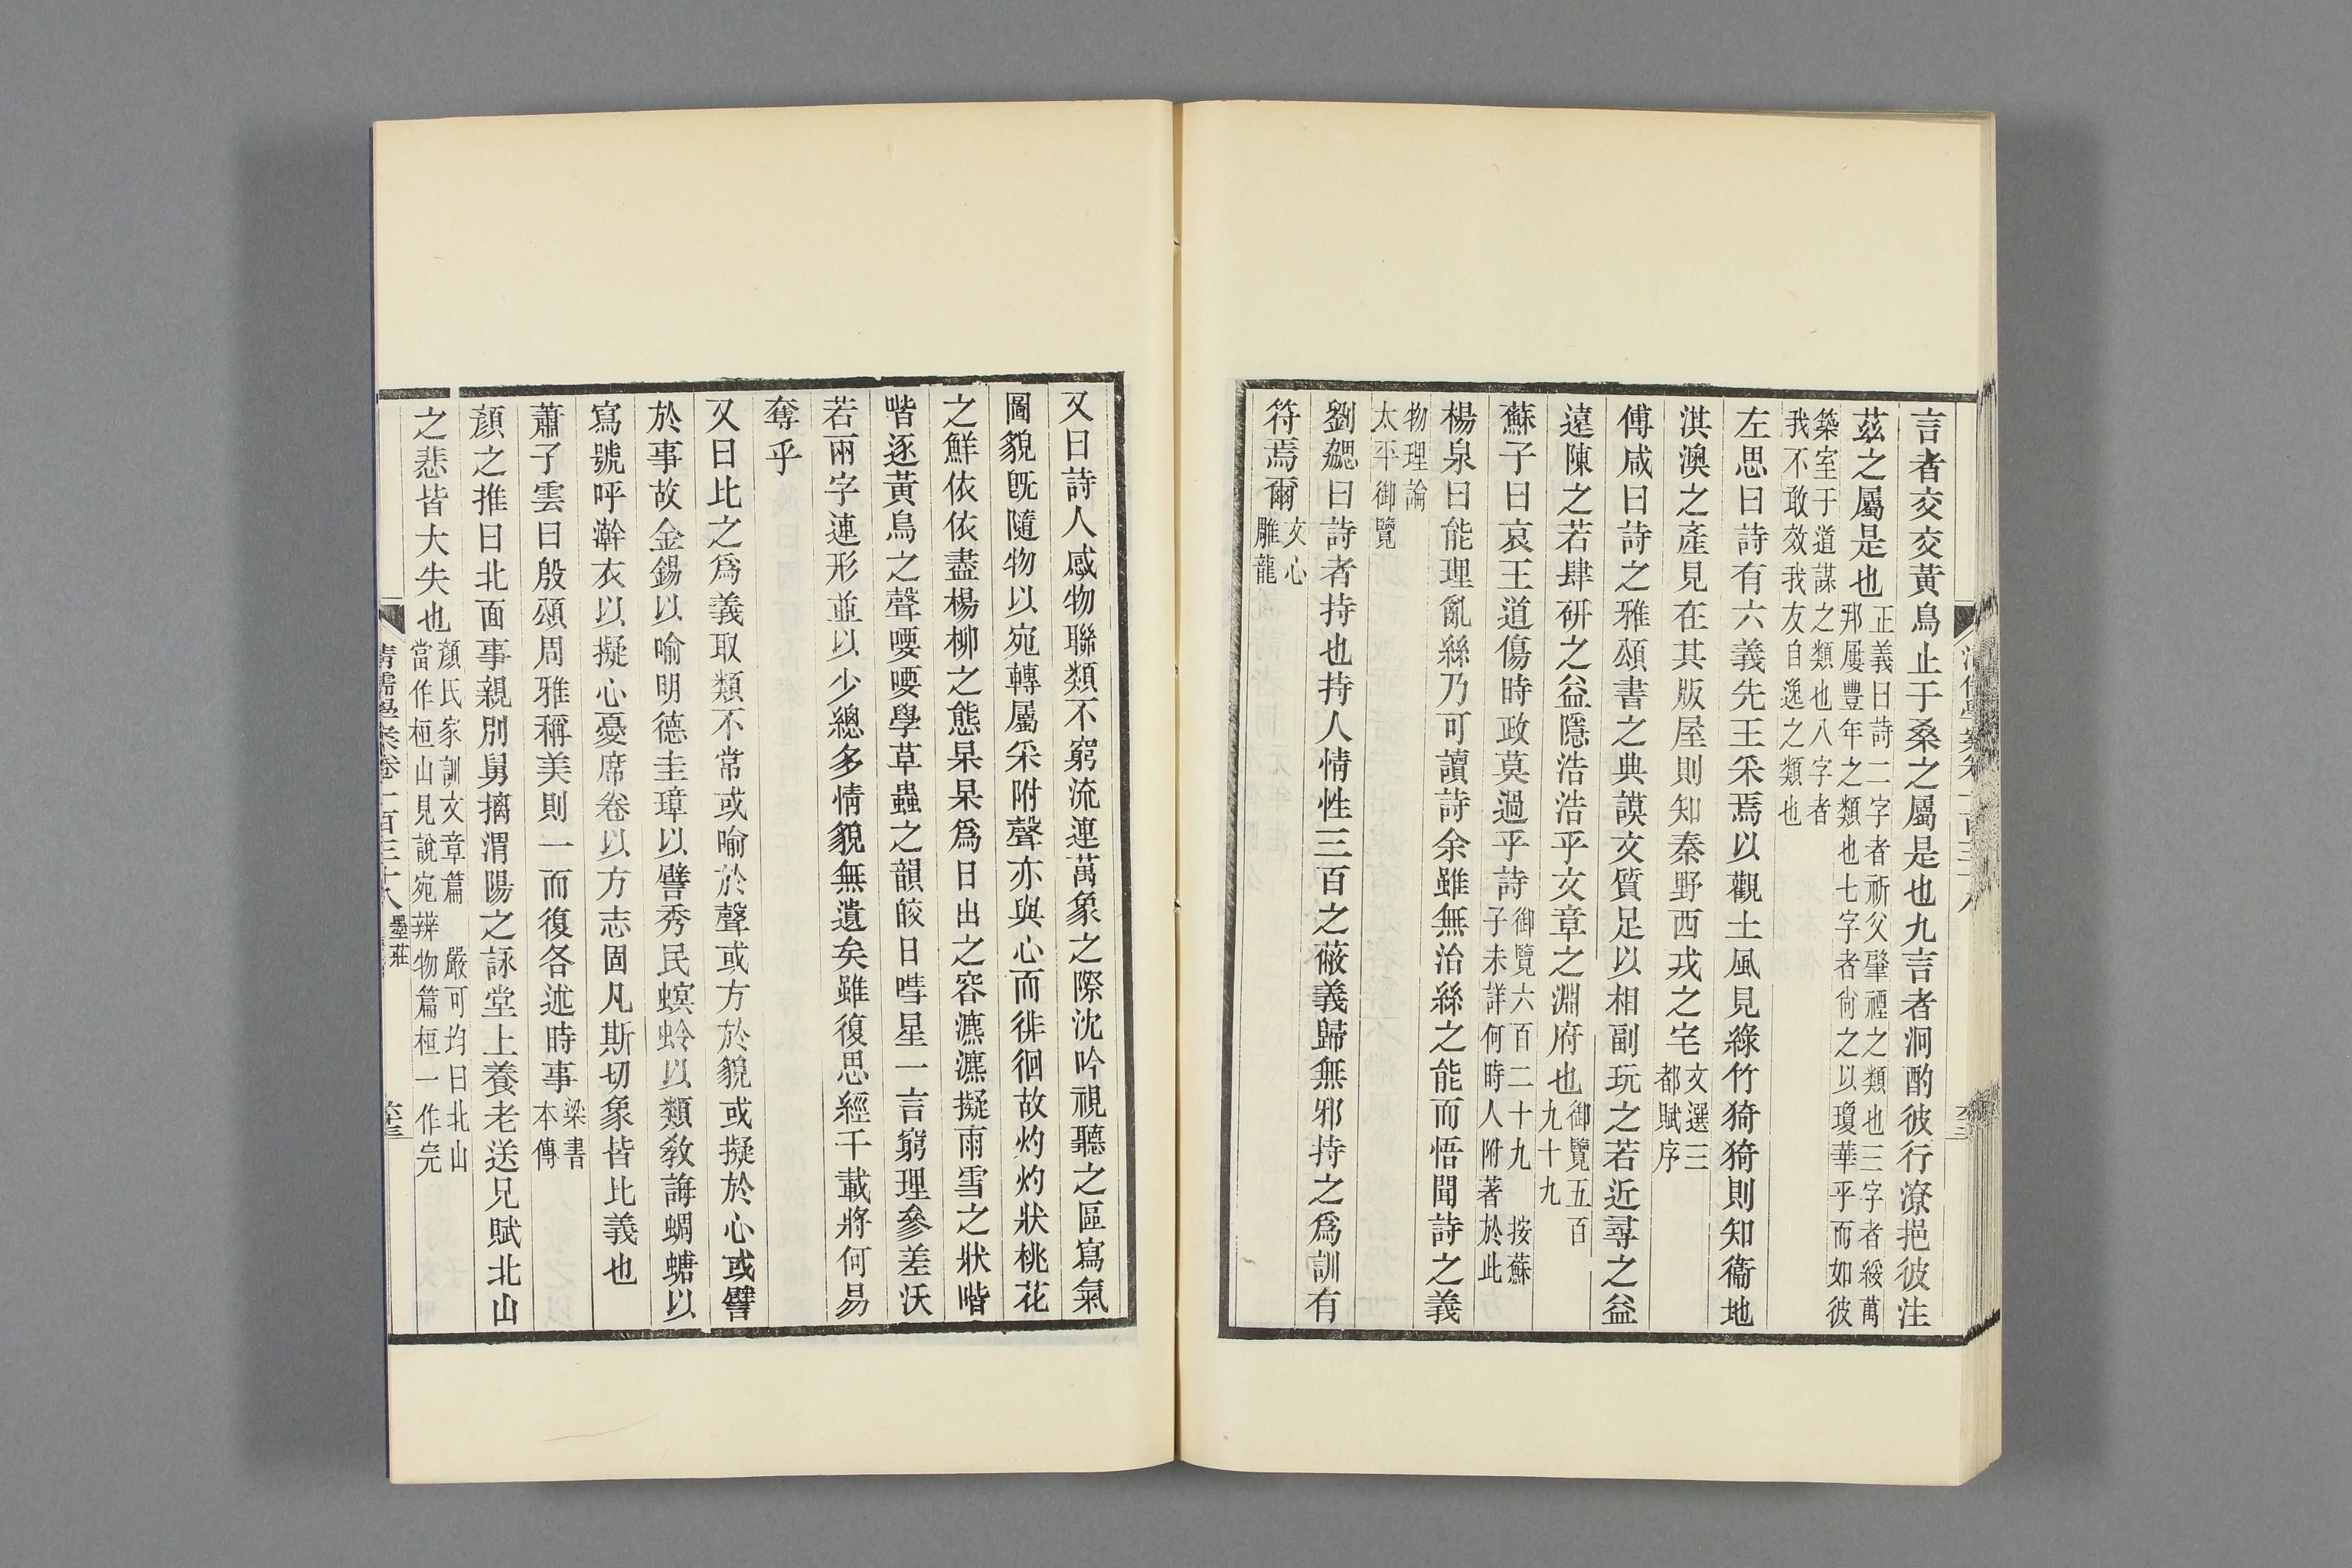 言者交交黃鳥止于桑之屬是也九言者泂酌彼行潦挹彼注
茲之屬是也
正義曰詩二字者祈父肇禋之類也三字者綏萬
邦屢豐年之類也七字者尙之以瓊華乎而如彼
築室于道謀之類也八字者
我不敢效我友自逸之類也
左思曰詩有六義先王采焉以觀土風見綠竹猗猗則知衞地
淇澳之產見在其版屋則知秦野西戎之宅
文選三
都賦序
傅咸曰詩之雅頌書之典謨文質足以相副玩之若近尋之益
遠陳之若肆硏之益隱浩浩乎文章之淵府也
御覽五百
九十九
蘇子曰哀王道傷時政莫過乎詩
御覽六百二十九 按蘇
子未詳何時人附著於此
楊泉曰能理亂絲乃可讀詩余雖無治絲之能而悟聞詩之義
物理論
太平御覽
劉勰曰詩者持也持人情性三百之蔽義歸無邪持之爲訓有
符焉爾
文心
雕龍
又曰詩人感物聯類不窮流連萬象之際沈吟視聽之區寫氣
圖貌旣隨物以宛轉屬采附聲亦與心而徘徊故灼灼狀桃花
之鮮依依盡楊柳之態杲杲爲日出之容瀌瀌擬雨雪之狀喈
喈逐黃鳥之聲喓喓學草蟲之韻皎日嘒星一言窮理參差沃
若兩字連形並以少總多情貌無遺矣雖復思經千載將何易
奪乎
又曰比之爲義取類不常或喻於聲或方於貌或擬於心或譬
於事故金錫以喻明德圭璋以譬秀民螟蛉以類敎誨蜩螗以
寫號呼澣衣以擬心憂席卷以方志固凡斯切象皆比義也
蕭子雲曰殷頌周雅稱美則一而復各述時事
梁書
本傳
顏之推曰北面事親別舅摛渭陽之詠堂上養老送兄賦北山
之悲皆大失也
顏氏家訓文章篇 嚴可均曰北山
當作桓山見說宛辨物篇桓一作完
清儒學案卷二百三十八
墨莊